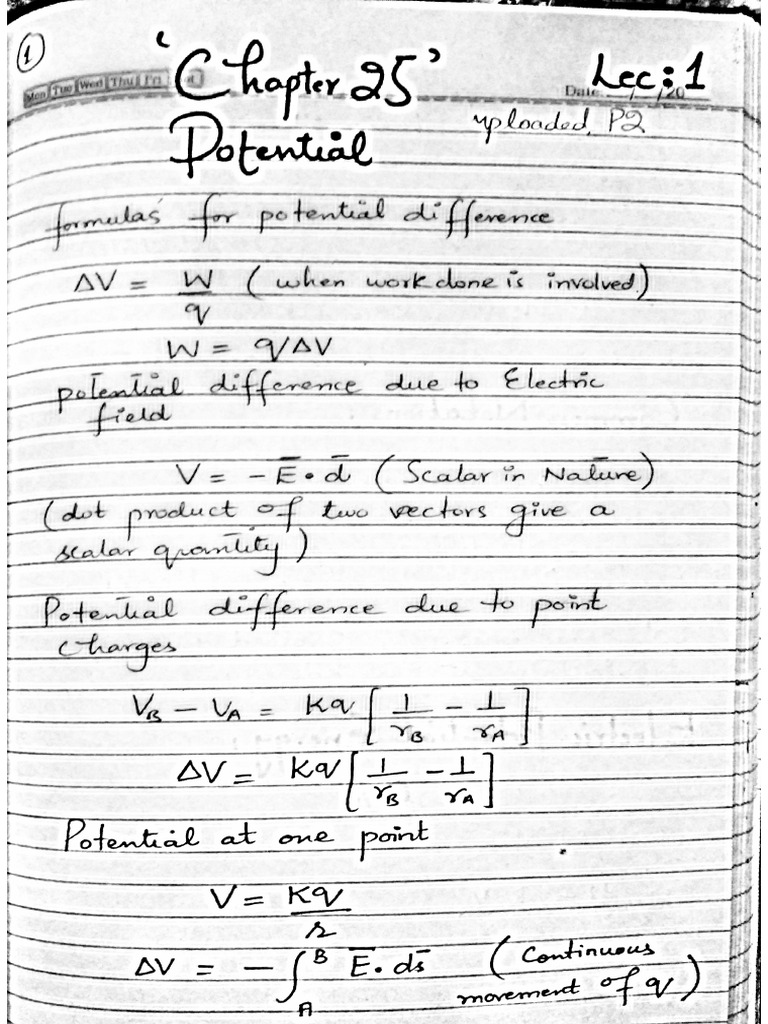 1
'Chapter 25'
Lec: 1
Mon Tue Wed Thu Fri Sat
Date:
uploaded P2
Potential
formulas for potential difference
ΔV = W/q (when work done is involved)
W = qΔV
potential difference due to Electric
field
V = - Ē • d̄ (Scalar in Nature)
(dot product of two vectors give a
scalar quantity)
Potential difference due to point
Charges
V_B - V_A = Kq [1/r_B - 1/r_A]
ΔV = Kq [1/r_B - 1/r_A]
Potential at one point
V = Kq/r
ΔV = - ∫_A^B Ē • ds̄ (Continuous
movement of q)